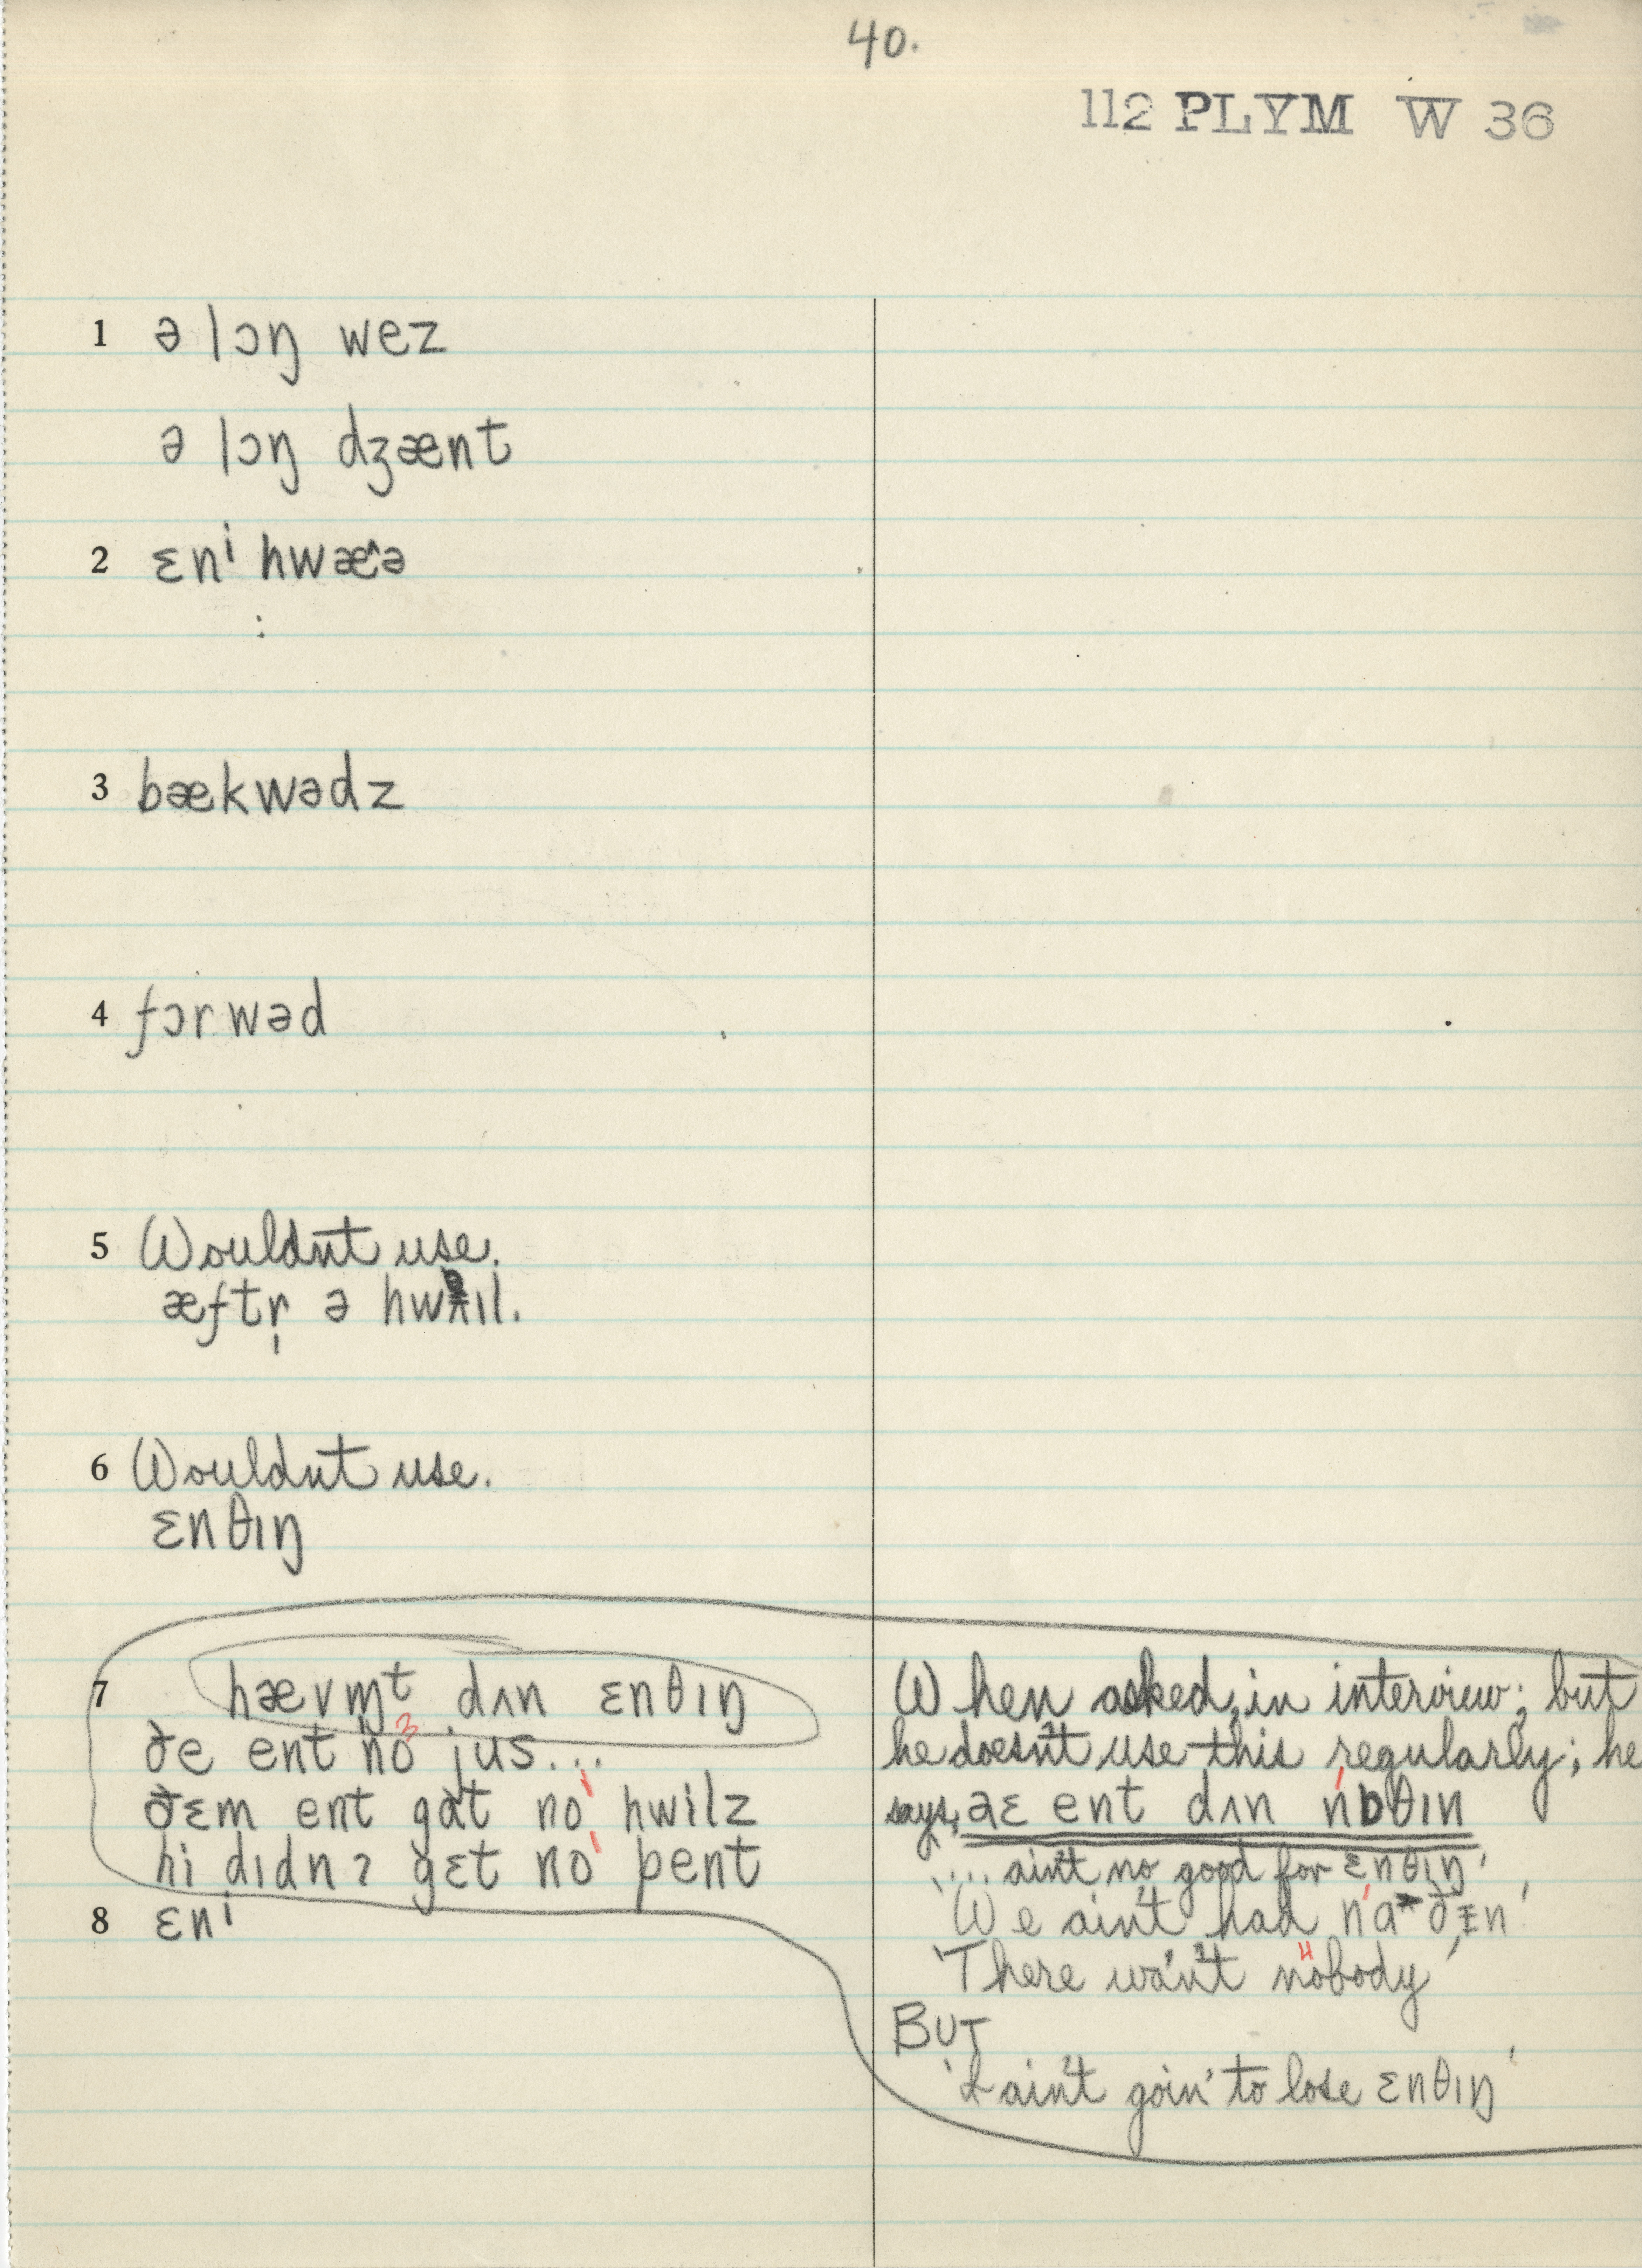 40.
112 PLYM W 36
1 ə lɔŋ wez
ə lɔŋ dʒænt
2 ɛnⁱ hwæ^ə
3 bækwədz
4 fɔrwəd
5 Wouldn't use.
æftr̩ ə hwɪl.
6 Wouldn't use.
ɛnθɪŋ
7 hævm̩t dʌn ɛnθɪŋ
ðe ent no³ jus...
ðɛm ent gat no¹ hwilz
hi dɪdnʔ gɛt no¹ pent
8 ɛnⁱ
When asked, in interview; but
he doesn't use this regularly; he
says, aɛ ent dʌn nɒθɪn
'... ain't no good for ɛnθɪŋ'
'We ain't had
'There wa'n't nobody'
BUT
'I ain't goin' to lose ɛnθɪŋ'